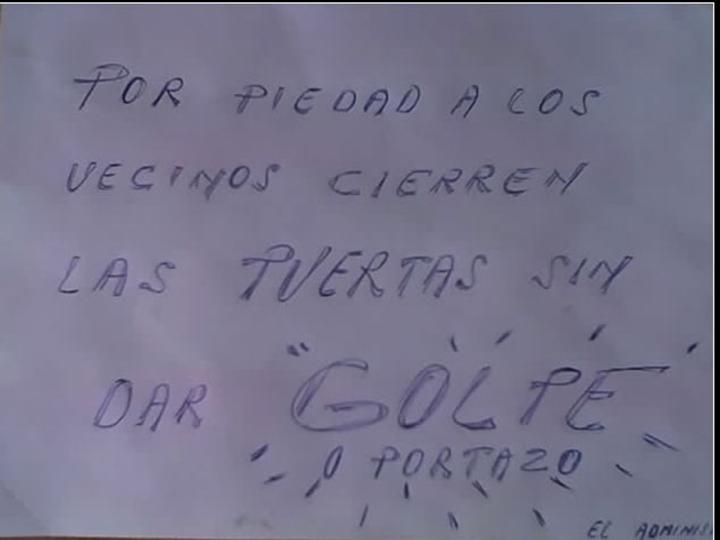 POR PIEDAD A LOS
VECINOS CIERREN
LAS PUERTAS SIN
DAR "GOLPE"
O PORTAZO
EL ADMINIS